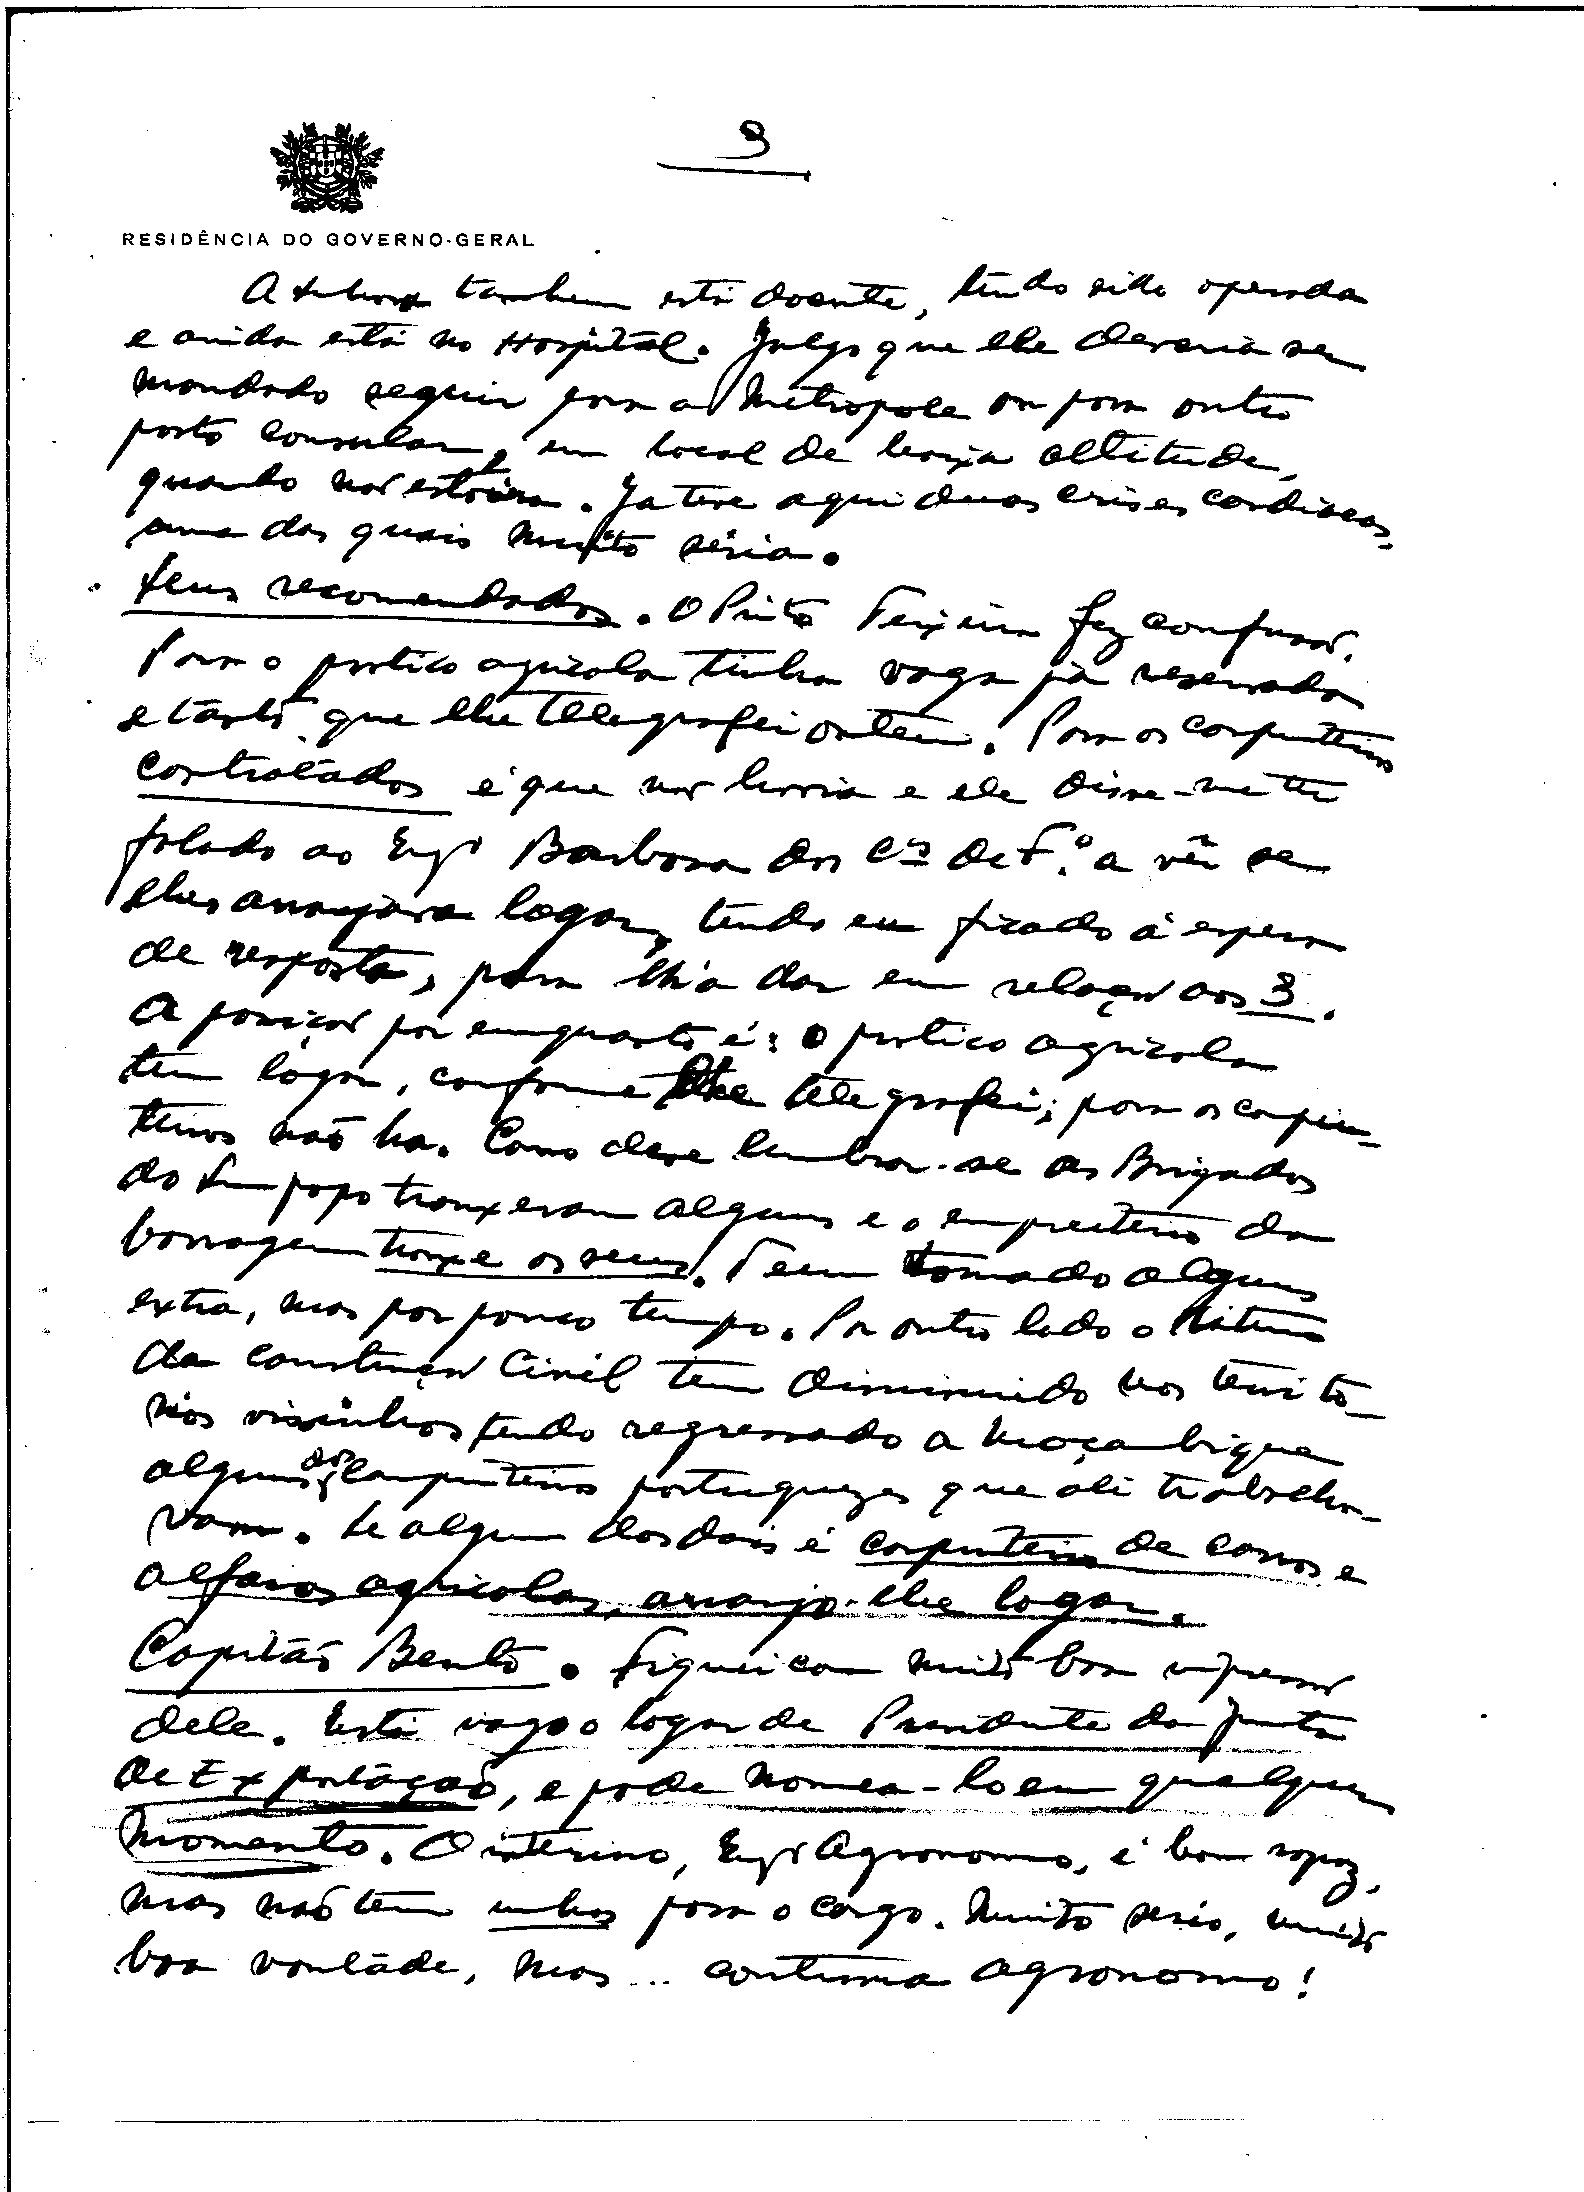 9
RESIDÊNCIA DO GOVERNO-GERAL
A senhora tambem está doente, tendo sido operada
e ainda está no Hospital. Julgo que ele deveria ser
mandado seguir para a Metropole ou para outro
posto consular, em local de baixa altitude,
quando não estoira. Ja teve aqui duas crises cardiacas,
uma das quais muito séria.
Seus recomendados. O Pinto Teixeira fez confusão.
Para o pratico agricola tinha vaga já reservada
e tanto que lhe telegrafei ontem. Para os carpinteiros
contratados é que não havia e ele disse-me ter
falado ao Engº Barbosa dos Cos de F.º a vêr se
lhes arranjava logar, tendo eu ficado á espera
de resposta, para lh'a dar em relação aos 3.
A posição por emquanto é: o pratico agricola
tem lógar, conforme lhe telegrafei; para os carpin-
teiros não ha. Como deve lembrar-se as Brigadas
do Limpopo trouxeram alguns e o empreiteiro da
barragem trouxe os seus. Tem tomado alguns
extra, mas por pouco tempo. Por outro lado o ritmo
da construção Civil tem diminuido nos territo-
rios visinhos tendo regressado a Moçambique
alguns dos carpinteiros portuguezes que ali trabalha-
vam. Se algum dos dois é carpinteiro de carros e
alfaias agricolas, arranjo-lhe logar.
Capitão Bento. Fiquei com muito boa impressão
dele. Está vago o logar de Presidente da Junta
de Exportação, e pode nomea-lo em qualquer
momento. O interino, Engº Agronomo, é bom rapaz,
mas não tem unhas para o cargo. Muito serio, muito
boa vontade, mas ... continua agronomo!